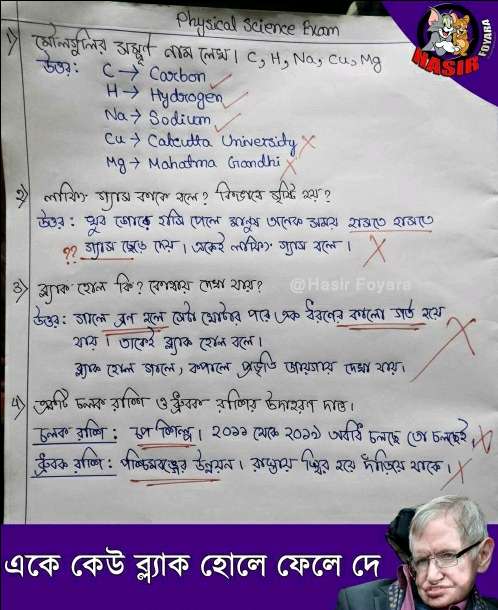 Physical Science Exam
HASIR
FOYARA
1) মৌলগুলির সম্পূর্ণ নাম লেখ। C, H, Na, Cu, Mg
উত্তর: C → Carbon
H → Hydrogen
Na → Sodium
Cu → Calcutta University
Mg → Mahatma Gandhi
2) লাফিং গ্যাস কাকে বলে? কিভাবে সৃষ্টি হয়?
উত্তর: খুব জোরে হাসি পেলে মানুষ অনেক সময় হাসতে হাসতে
?? গ্যাস ছেড়ে দেয়। একেই লাফিং গ্যাস বলে।
3) ব্ল্যাক হোল কি? কোথায় দেখা যায়?
@Hasir Foyara
উত্তর: গালে ব্রণ হলে সেটা খোটার পরে এক ধরণের কালো গর্ত হয়ে
যায়। তাকেই ব্ল্যাক হোল বলে।
ব্ল্যাক হোল গালে, কপালে প্রভৃতি জায়গায় দেখা যায়।
4) একটি চলক রাশি ও ধ্রুবক রাশির উদাহরণ দাও।
চলক রাশি: চপ শিল্প। ২০১১ থেকে ২০১৯ অবধি চলছে তো চলছেই
ধ্রুবক রাশি: পশ্চিমবঙ্গের উন্নয়ন। রাস্তায় স্থির হয়ে দাঁড়িয়ে থাকে।
একে কেউ ব্ল্যাক হোলে ফেলে দে